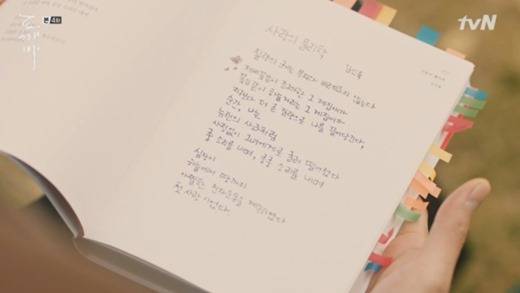 도깨비
본 4회
tvN
사랑의 물리학
김인육
질량의 크기는 부피와 비례하지 않는다
제비꽃같이 조그마한 그 계집애가
꽃잎같이 하늘거리는 그 계집애가
지구보다 더 큰 질량으로 나를 끌어당긴다.
순간, 나는
뉴턴의 사과처럼
사정없이 그녀에게로 굴러 떨어졌다
쿵 소리를 내며, 쿵쿵 소리를 내며
심장이
하늘에서 땅까지
아찔한 진자운동을 계속하였다
첫사랑이었다.